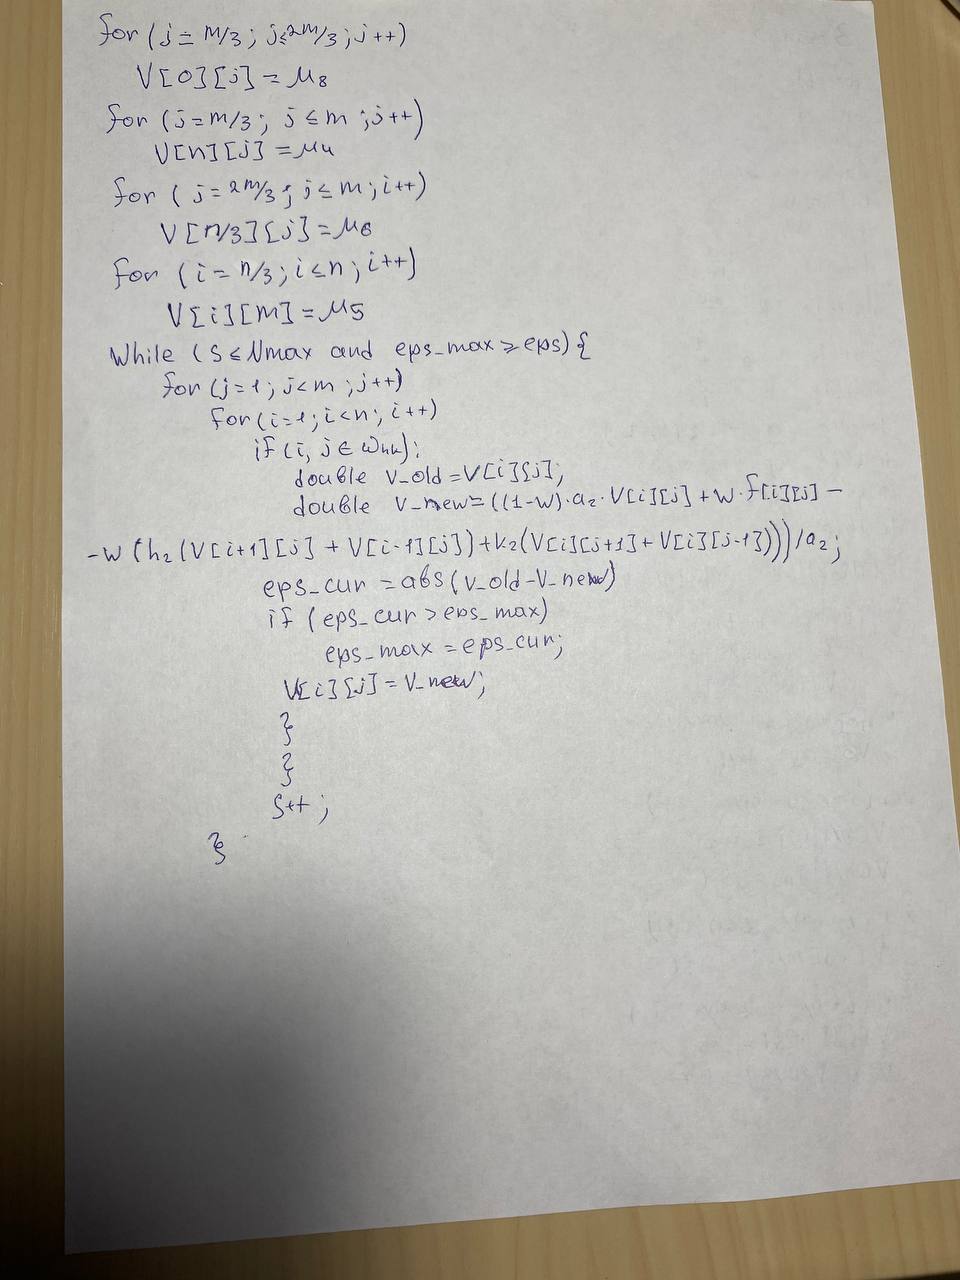 for (j = m/3; j≤2m/3; j++)
V[0][j] = μ8
for (j=m/3; j ≤ m; j++)
V[n][j] = μ4
for (j=2m/3; j≤m; i++)
V[n/3][j] = μ6
for (i = n/3; i≤n; i++)
V[i][m] = μ5
While (S ≤ Nmax and eps_max ≥ eps) {
for (j=1; j<m; j++)
for (i=1; i<n; i++)
if (i, j ∈ ωhk):
double v_old = V[i][j];
double v_new = ((1-w)·a2·V[i][j] + w·f[i][j] -
-w (h2(V[i+1][j] + V[i-1][j])+k2(V[i][j+1]+V[i][j-1])))/a2;
eps_cur = abs(v_old-v_new)
if (eps_cur > eps_max)
eps_max = eps_cur;
V[i][j] = v_new;
}
}
S++;
}